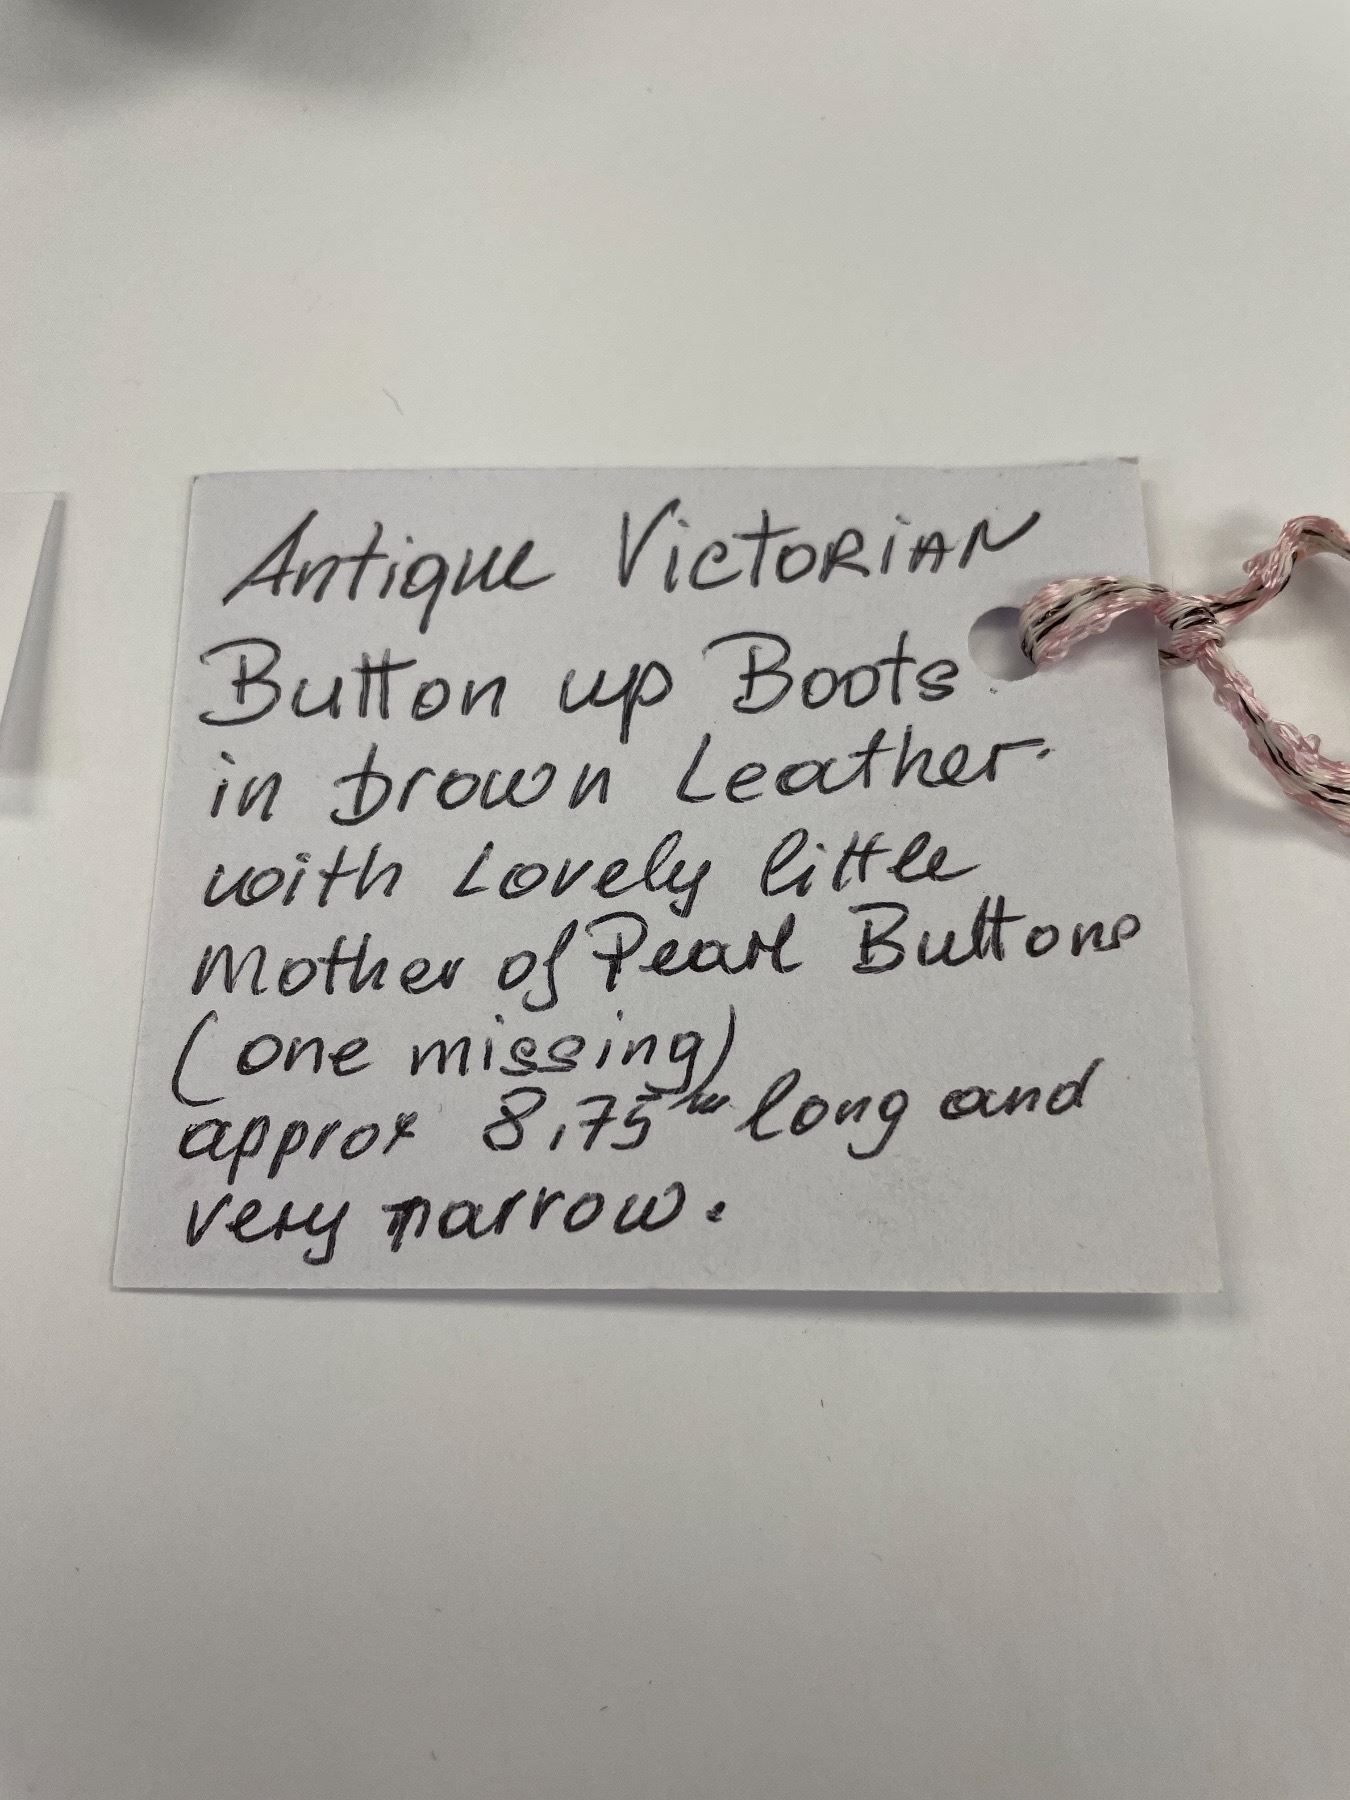 Antique Victorian
Button up Boots
in brown Leather.
with Lovely little
Mother of Pearl Buttons
(one missing)
approx 8,75" long and
very narrow.